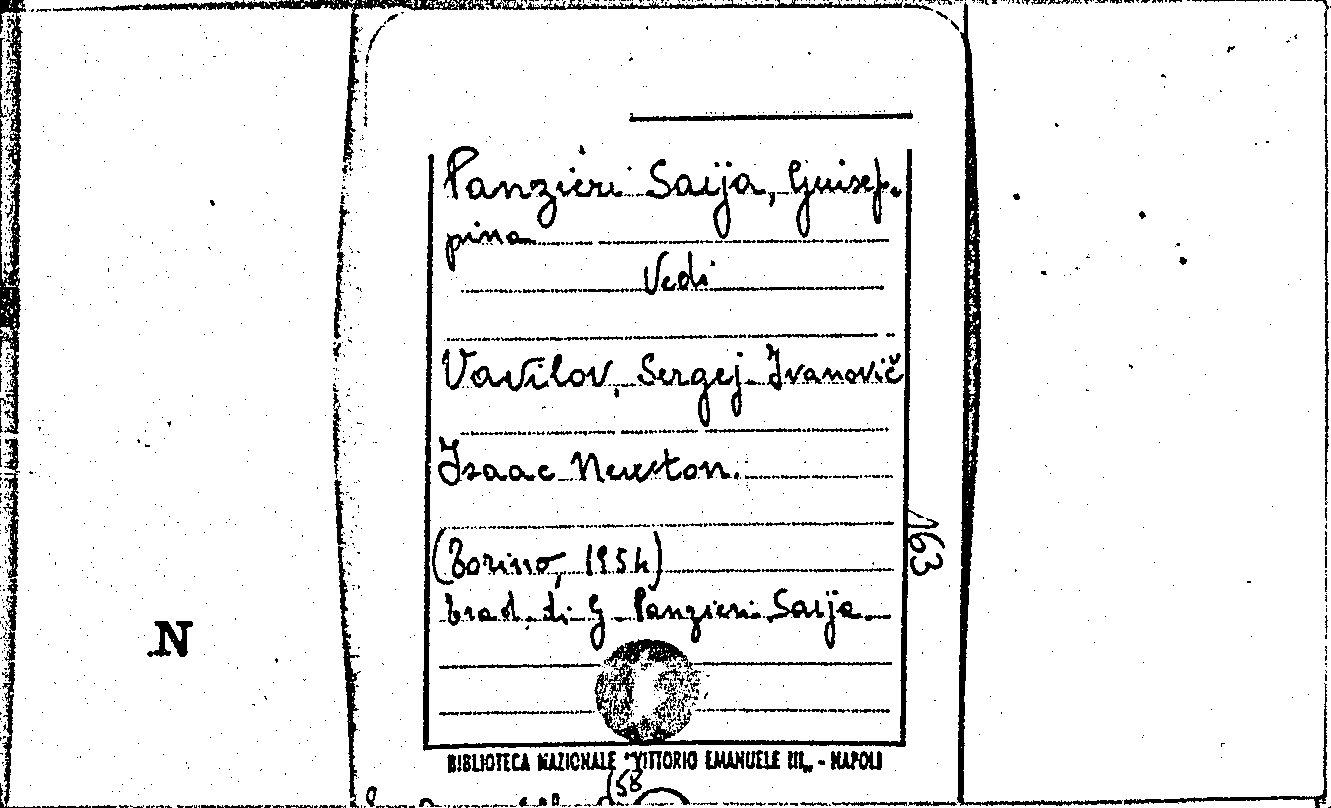 Panzieri Saija, Guisep-
pina
Vedi
Vavilov, Sergej Ivanovič
Isaac Newton.
(Torino, 1954)
trad. di G Panzieri Saija
163
N
BIBLIOTECA NAZIONALE "VITTORIO EMANUELE III„ - NAPOLI
(58